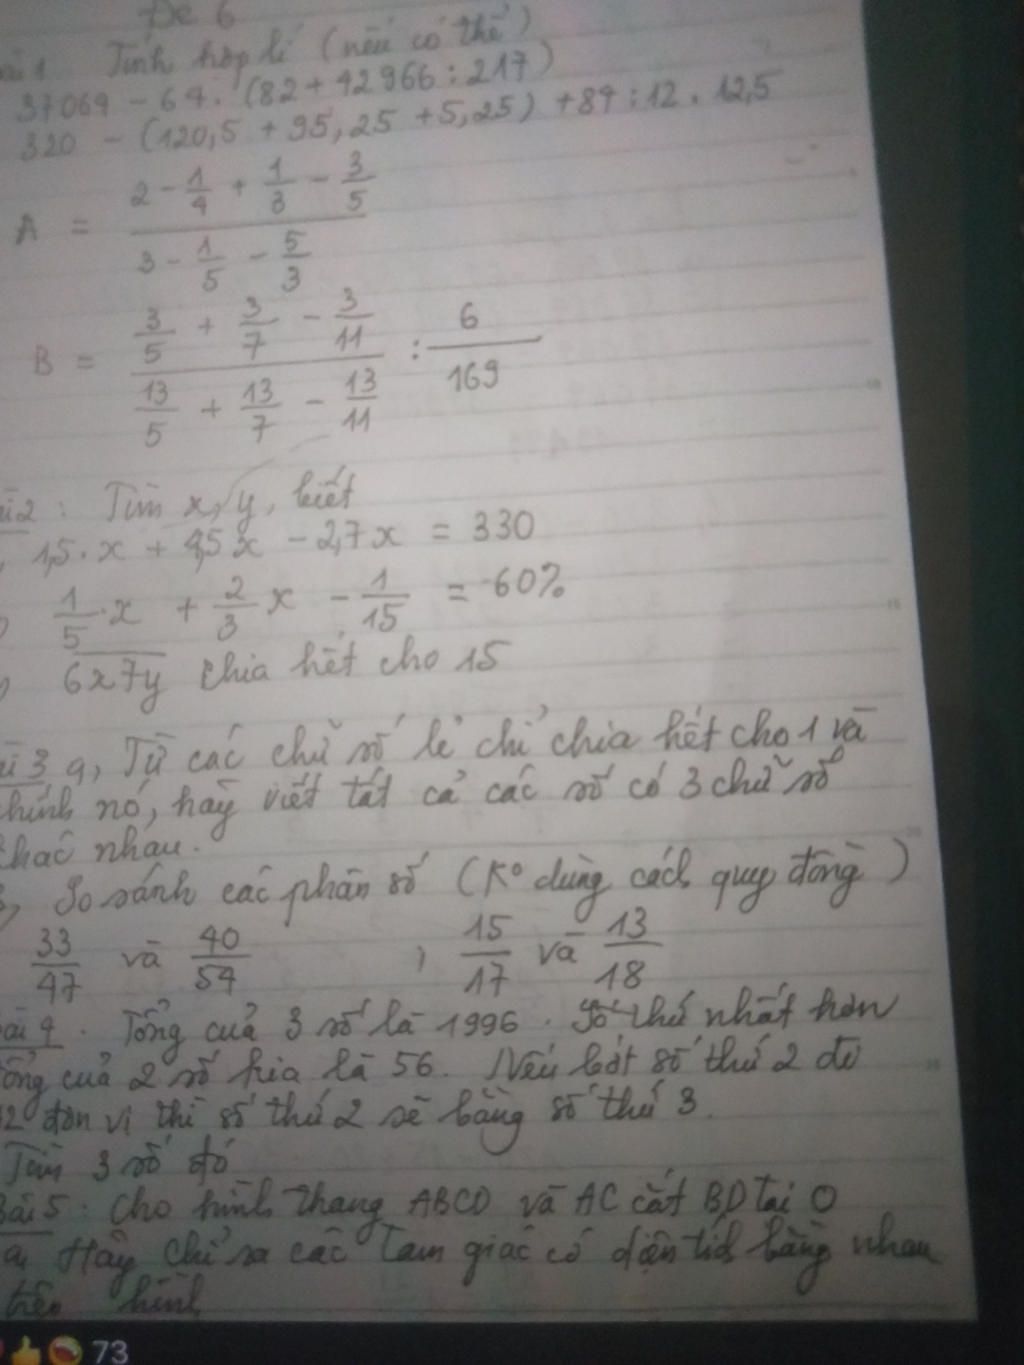 Đề 6
Bài 1 Tính hợp lí (nếu có thể)
37064 - 64. (82 + 42966 : 217)
320 - (120,5 + 95,25 + 5,25) + 84 : 12 . 12,5
A = (2 - 1/4 + 1/3 - 3/5) / (3 - 1/5 - 5/3)
B = (3/5 + 3/7 - 3/11) / (13/5 + 13/7 - 13/11) : 6/169
Bài 2 : Tìm x, y, biết
1,5.x + 4,5x - 2,7x = 330
1/5 . x + 2/3 x - 1/15 = 60%
6x7y chia hết cho 15
Bài 3 a, Từ các chữ số lẻ chỉ chia hết cho 1 và
chính nó, hãy viết tất cả các số có 3 chữ số
khác nhau.
So sánh các phân số (K° dùng cách quy đồng)
33/47 và 40/54 , 15/17 và 13/18
Bài 4. Tổng của 3 số là 1996. Số thứ nhất hơn
tổng của 2 số kia là 56. Nếu bớt số thứ 2 đi
đơn vị thì số thứ 2 sẽ bằng số thứ 3.
Tìm 3 số đó
Bài 5 : Cho hình thang ABCD và AC cắt BD tại O
a, Hãy chỉ ra các tam giác có diện tích bằng nhau
trên hình
73